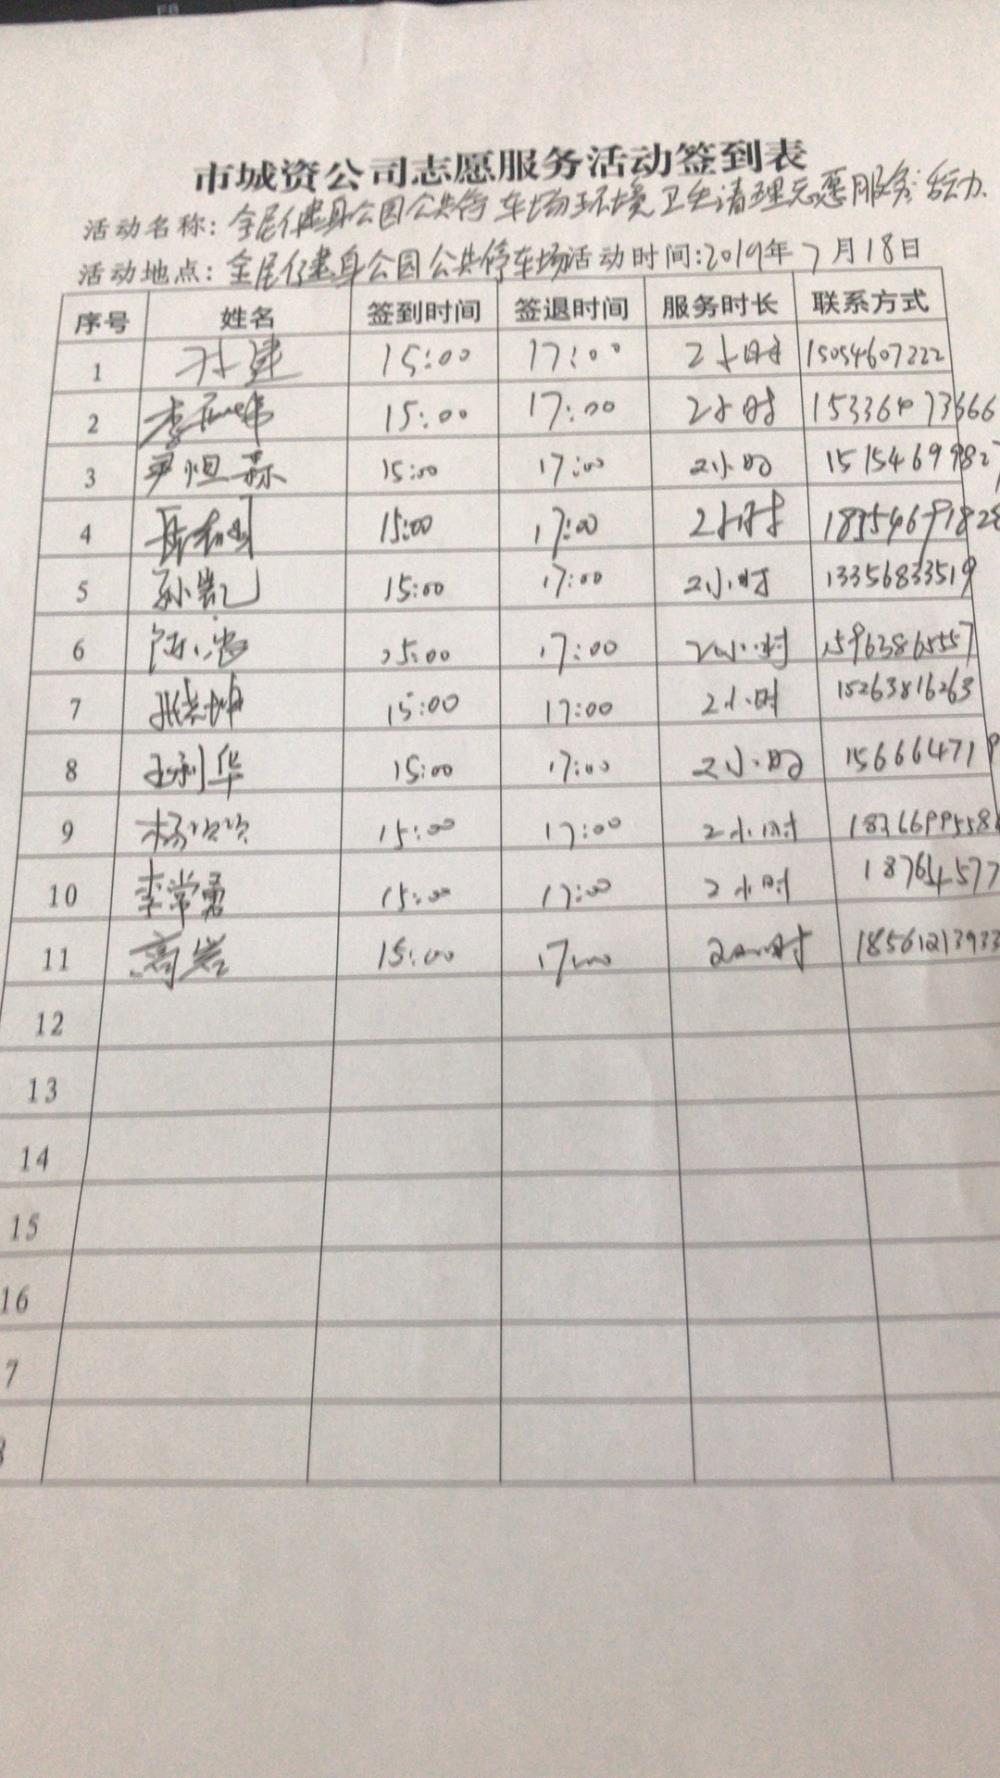 市城资公司志愿服务活动签到表
活动名称：全民健身公园公共停车场环境卫生清理志愿服务活动
活动地点：全民健身公园公共停车场 活动时间：2019年7月18日
序号 姓名 签到时间 签退时间 服务时长 联系方式
1 15:00 17:00 2小时 15054607222
2 15:00 17:00 2小时 15336473666
3 尹恒森 15:00 17:00 2小时 1515469982
4 15:00 17:00 2小时
5 孙凯 15:00 17:00 2小时 13356833519
6 15:00 17:00 2小时 15963865557
7 15:00 17:00 2小时 15263816263
8 华 15:00 17:00 2小时 156664719
9 杨 15:00 17:00 2小时 1836699558
10 李常勇 15:00 17:00 2小时 18764577
11 高岩 15:00 17:00 2小时 18561213933
12
13
14
15
16
7